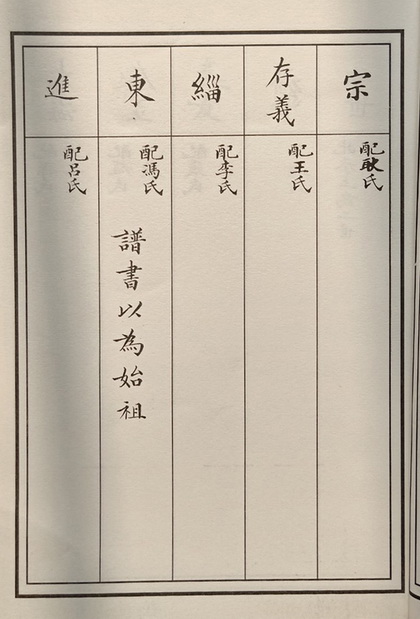 宗
配耿氏
存義
配王氏
緇
配李氏
東
配馮氏
譜書以為始祖
進
配呂氏